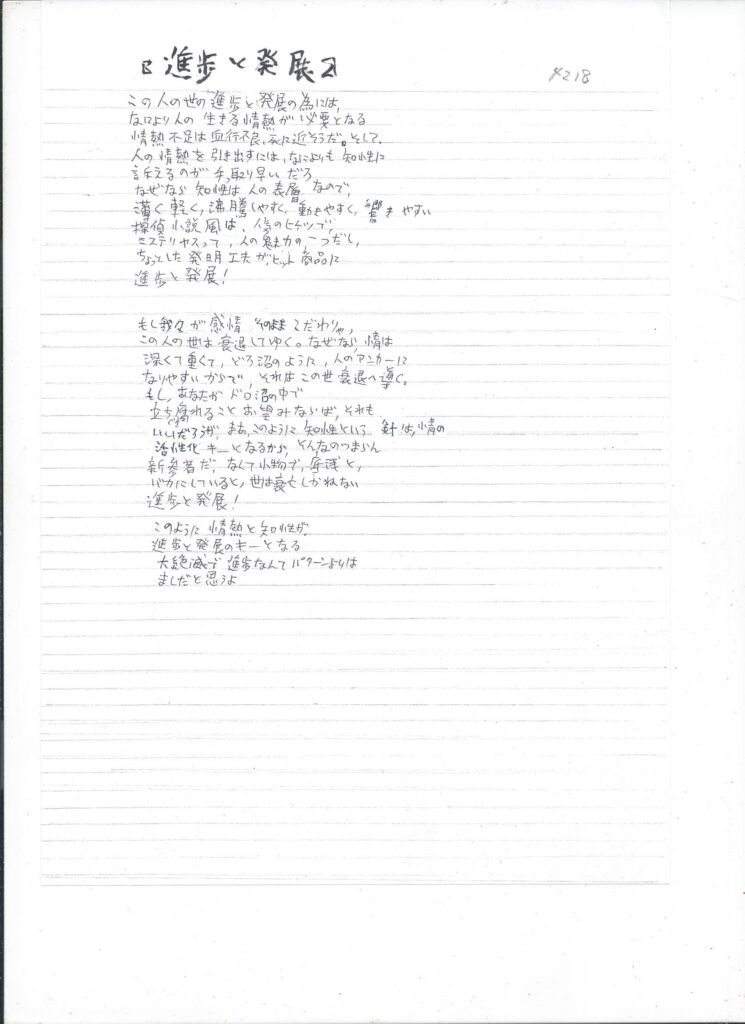 『進歩と発展』
4218
この人の世の進歩と発展の為には、
なにより人の生きる情熱が必要となる
情熱不足は血行不良、死に近そうだ。そして、
人の情熱を引き出すには、なによりも知性に
訴えるのが手っ取り早いだろ
なぜなら知性は人の表層なので、
薄く軽く、沸騰しやすく、動きやすく、響きやすい
探偵小説風は、人気のヒケツで、
ミステリヤスって、人の魅力の一つだし、
ちょっとした発明工夫がヒット商品に
進歩と発展！
もし我々が感情そのままこだわりゃ、
この人の世は衰退してゆく。なぜなら、情は
深くて重くて、どろ沼のように、人のアンカーに
なりやすいからで、それはこの世衰退へ導く。
もし、あなたがドロ沼の中で
立ち腐れることお望みならば、それも
いいだろうが、まあ、このように知性という針は、情の
活性化キーとなるから、そんなのつまらん
新参者だ、なんて小物で、浅と、
バカにしていると、世は衰亡しかねない
進歩と発展！
このように情熱と知性が、
進歩と発展のキーとなる
大絶滅で進歩なんてパターンよりは
ましだと思うよ